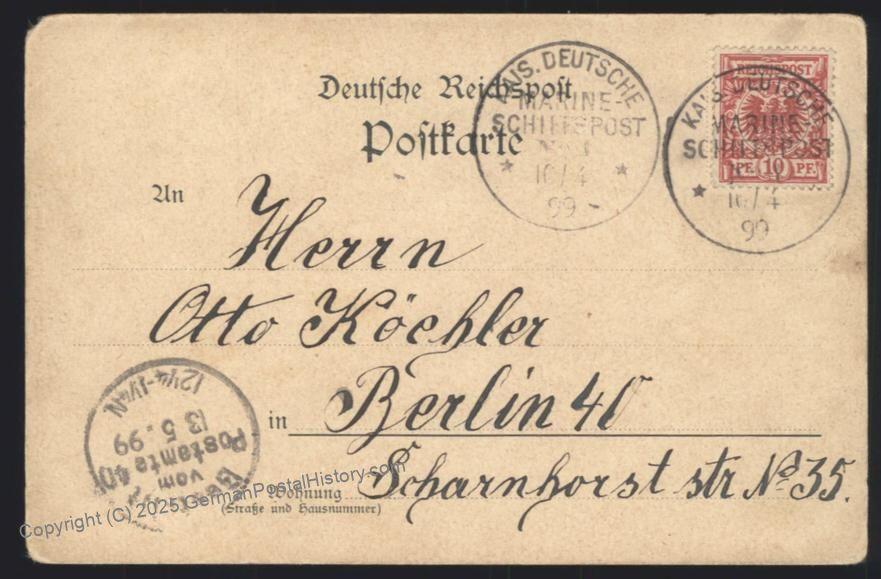 Deutsche Reichspost
Postkarte
KAIS. DEUTSCHE
MARINE-
SCHIFFSPOST
No 1
10/4
99
REICHSPOST
10 PF PF
KAIS. DEUTSCHE
MARINE-
SCHIFFSPOST
10/4
99
An
Herrn
Otto Köehler
in Berlin 40
Wohnung Scharnhorst str No 35.
(Straße und Hausnummer)
vom
Postamte 40
13 5.99
12¼-1¼N
Copyright (C) 2025 GermanPostalHistory.com